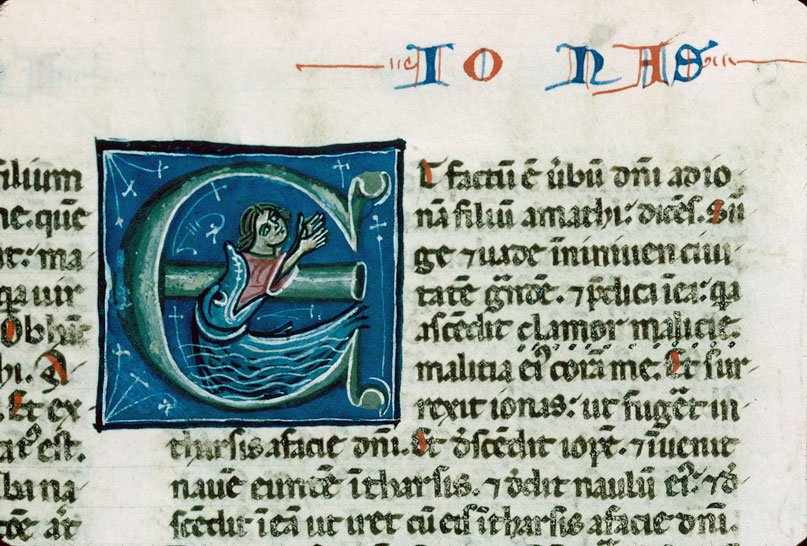 IONAS
filium
ne. que̅
at: ma
qͣ uir
Obhu̅c
hi. A
Et ex
at⁹ est.
ba na
to̅e at
ET factu̅ e̅ ubu̅ dn̅i ad io
na̅ filiu̅ amathi: dice̅s. Su̅
ge ⁊ uade in niniuen ciui
tate̅ gͣnde̅. ⁊ p̅dica i̅ ea: qͣ
asce̅dit clamor malicie.
malitia ei⁹ cora̅ me. Et sur
rexit ionas: ut fug̅et in
tharsis a facie dn̅i. Et d̅sce̅dit iope̅. ⁊ i̅uenit
naue̅ eunte̅ i̅ tharsis. ⁊ d̅dit naulu̅ ei⁹. ⁊ d̅
sce̅dit i̅ ea̅ ut iret cu̅ eis i̅ tharsis a facie dn̅i.